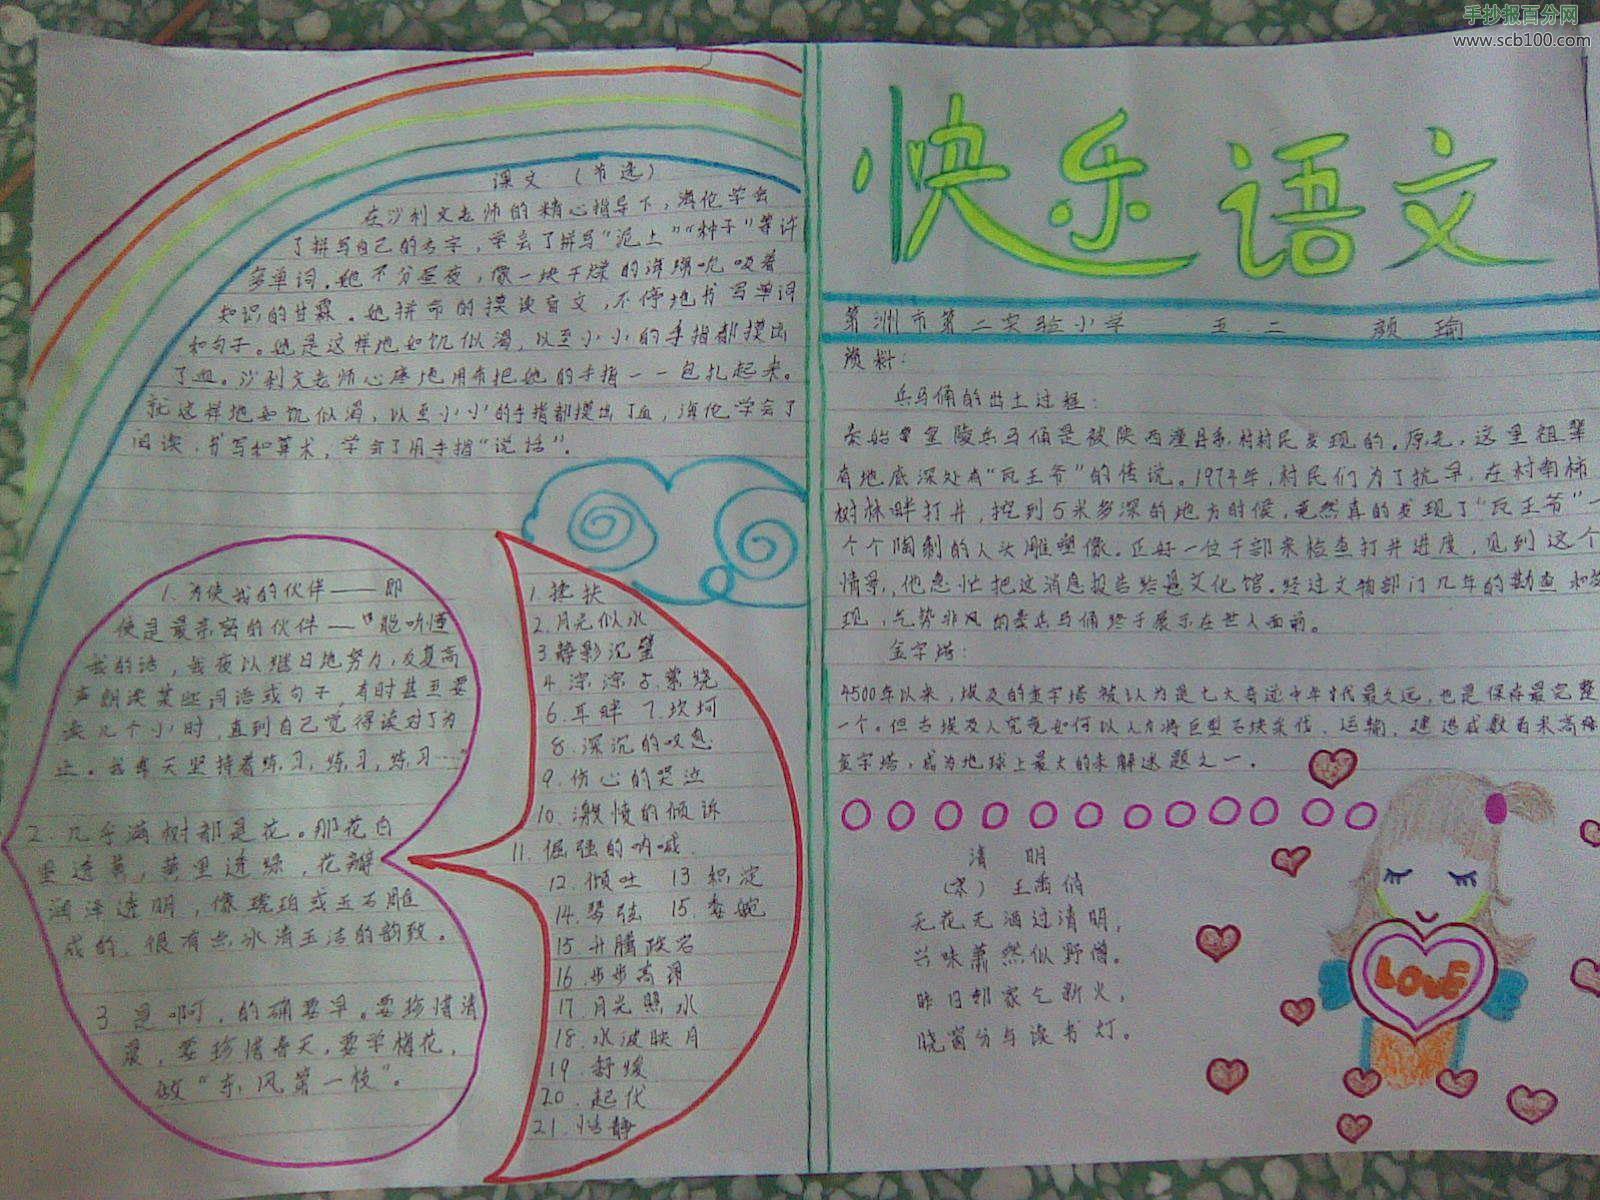 手抄报百分网
www.scb100.com
课文 (节选)
在沙利文老师的精心指导下,海伦学会
了拼写自己的名字,学会了拼写“泥土”“种子”等许
多单词。她不分昼夜,像一块干燥的海绵吮吸着
知识的甘霖。她拼命的摸读盲文,不停地书写单词
和句子。她是这样地如饥似渴,以至小小的手指都摸出
了血。沙利文老师心疼地用布把她的手指一一包扎起来。
就这样地如饥似渴,以至小小的手指都摸出了血,海伦学会了
阅读,书写和算术,学会了用手指“说话”。
1.为使我的伙伴——即
使是最亲密的伙伴—“能听懂
我的话,我夜以继日地努力,反复高
声朗读某些词语或句子,有时甚至要
读几个小时,直到自己觉得读对了为
止。我每天坚持着练习,练习,练习…”
2.几乎满树都是花。那花白
里透黄,黄里透绿,花瓣
润泽透明,像琥珀或玉石雕
成的,很有点冰清玉洁的韵致。
3 是啊,的确要早。要珍惜清
晨,要珍惜春天,要学梅花,
做“东风第一枝”。
1.搀扶
2.月光似水
3.静影沉璧
4.淙淙 5.萦绕
6.耳畔 7.坎坷
8.深沉的叹息
9.伤心的哭泣
10.激愤的倾诉
11.倔强的呐喊.
12.倾吐 13 积淀
14.琴弦 15.委婉
15 升腾跌宕
16.步步高昂
17.月光照水
18.水波映月
19.舒缓
20.起伏
21.恬静
快乐语文
洲市第二实验小学 五.二 颜瑜
资料:
兵马俑的出土过程:
秦始皇皇陵兵马俑是被陕西潼县 村村民发现的。原先,这里祖辈
有地底深处有“瓦王爷”的传说。1974年,村民们为了抗旱,在村南柿
树林畔打井,挖到5米多深的地方时候,竟然真的发现了“瓦王爷”一
个个陶制的人头雕塑像。正好一位干部来检查打井进度,见到这个
情景,他急忙把这消息报告给县文化馆。经过文物部门几年的勘查和
现,气势非凤的秦兵马俑终于展示在世人面前。
金字塔:
4500年以来,埃及的金字塔被认为是七大奇迹中年代最久远,也是保存最完整
一个。但古埃及人究竟如何以人力将巨型石块采伐、运输、建造成数百米高
金字塔,成为地球上最大的未解迷题之一。
清 明
(宋) 王禹偁
无花无酒过清明,
兴味萧然似野僧。
昨日邻家乞新火,
晓窗分与读书灯。
LOVE